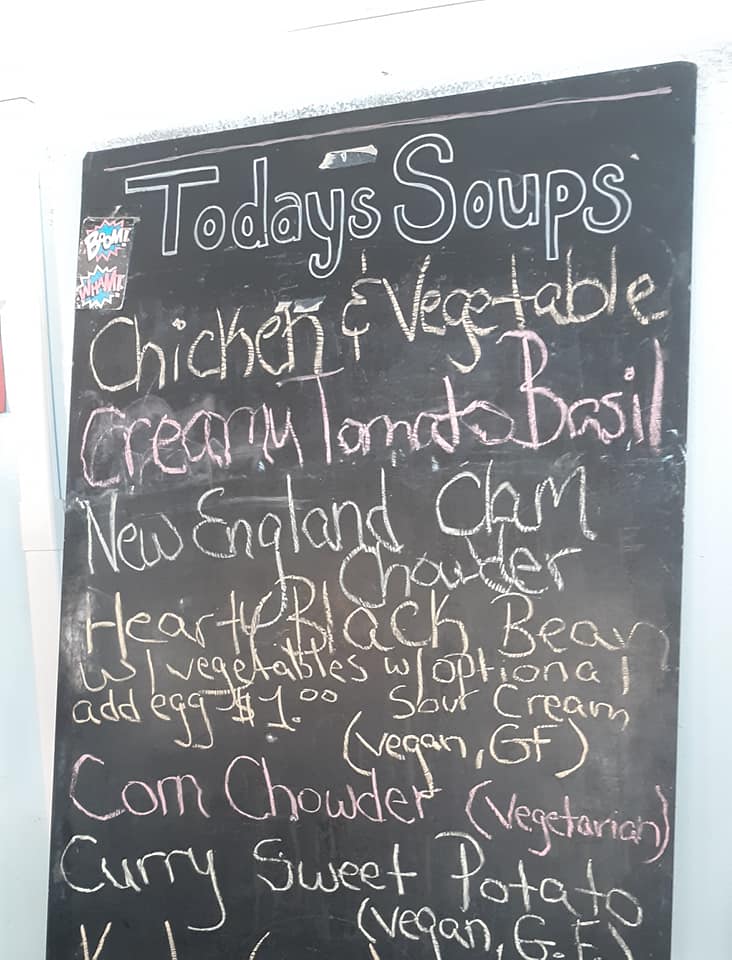 Todays Soups
BOOM!
WHAM!
Chicken & Vegetable
Creamy Tomato Basil
New England Clam
Chowder
Hearty Black Bean
w/vegetables w/optional
add egg $1.00 Sour Cream
(vegan, GF)
Corn Chowder (Vegetarian)
Curry Sweet Potato
(vegan, G.F.)